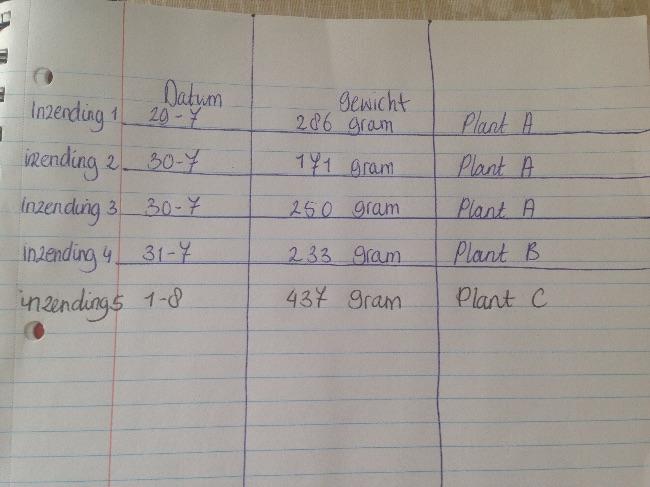 Datum Gewicht
Inzending 1 29-7 286 gram Plant A
inzending 2 30-7 171 gram Plant A
inzending 3 30-7 250 gram Plant A
inzending 4 31-7 233 gram Plant B
inzending 5 1-8 437 gram Plant C